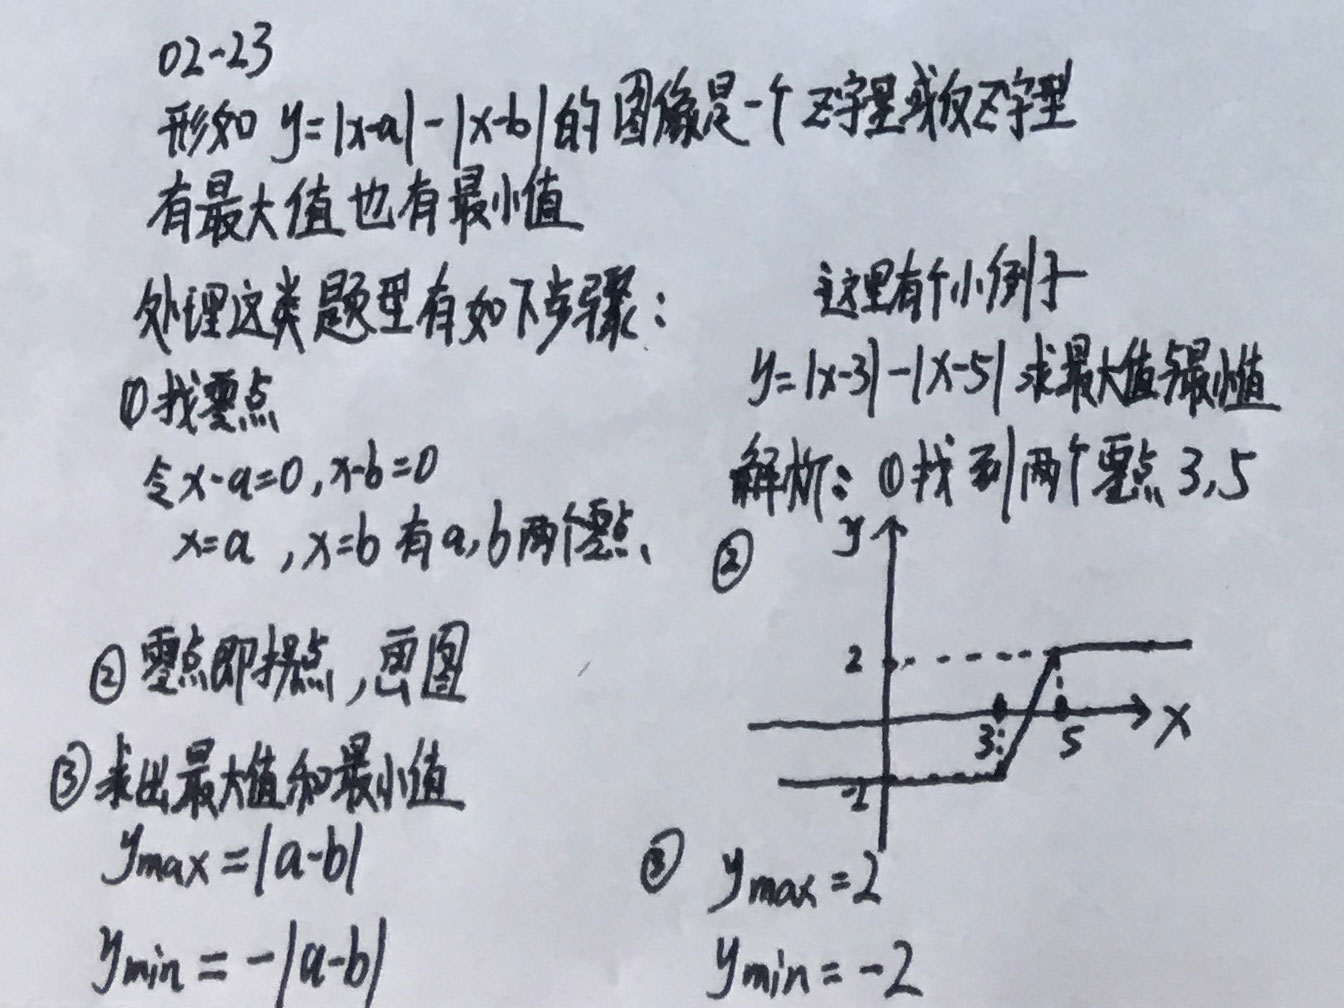 02-23
形如 y=|x-a|-|x-b|的图像是一个Z字型或反Z字型
有最大值也有最小值
处理这类题型有如下步骤：
①找零点
令x-a=0,x-b=0
x=a,x=b 有a,b两个零点、
②零点即拐点,画图
③求出最大值和最小值
ymax=|a-b|
ymin=-|a-b|
这里有个小例子
y=|x-3|-|x-5| 求最大值与最小值
解析：①找到两个零点3,5
②
y
2
3
5
x
-2
③ ymax=2
ymin=-2